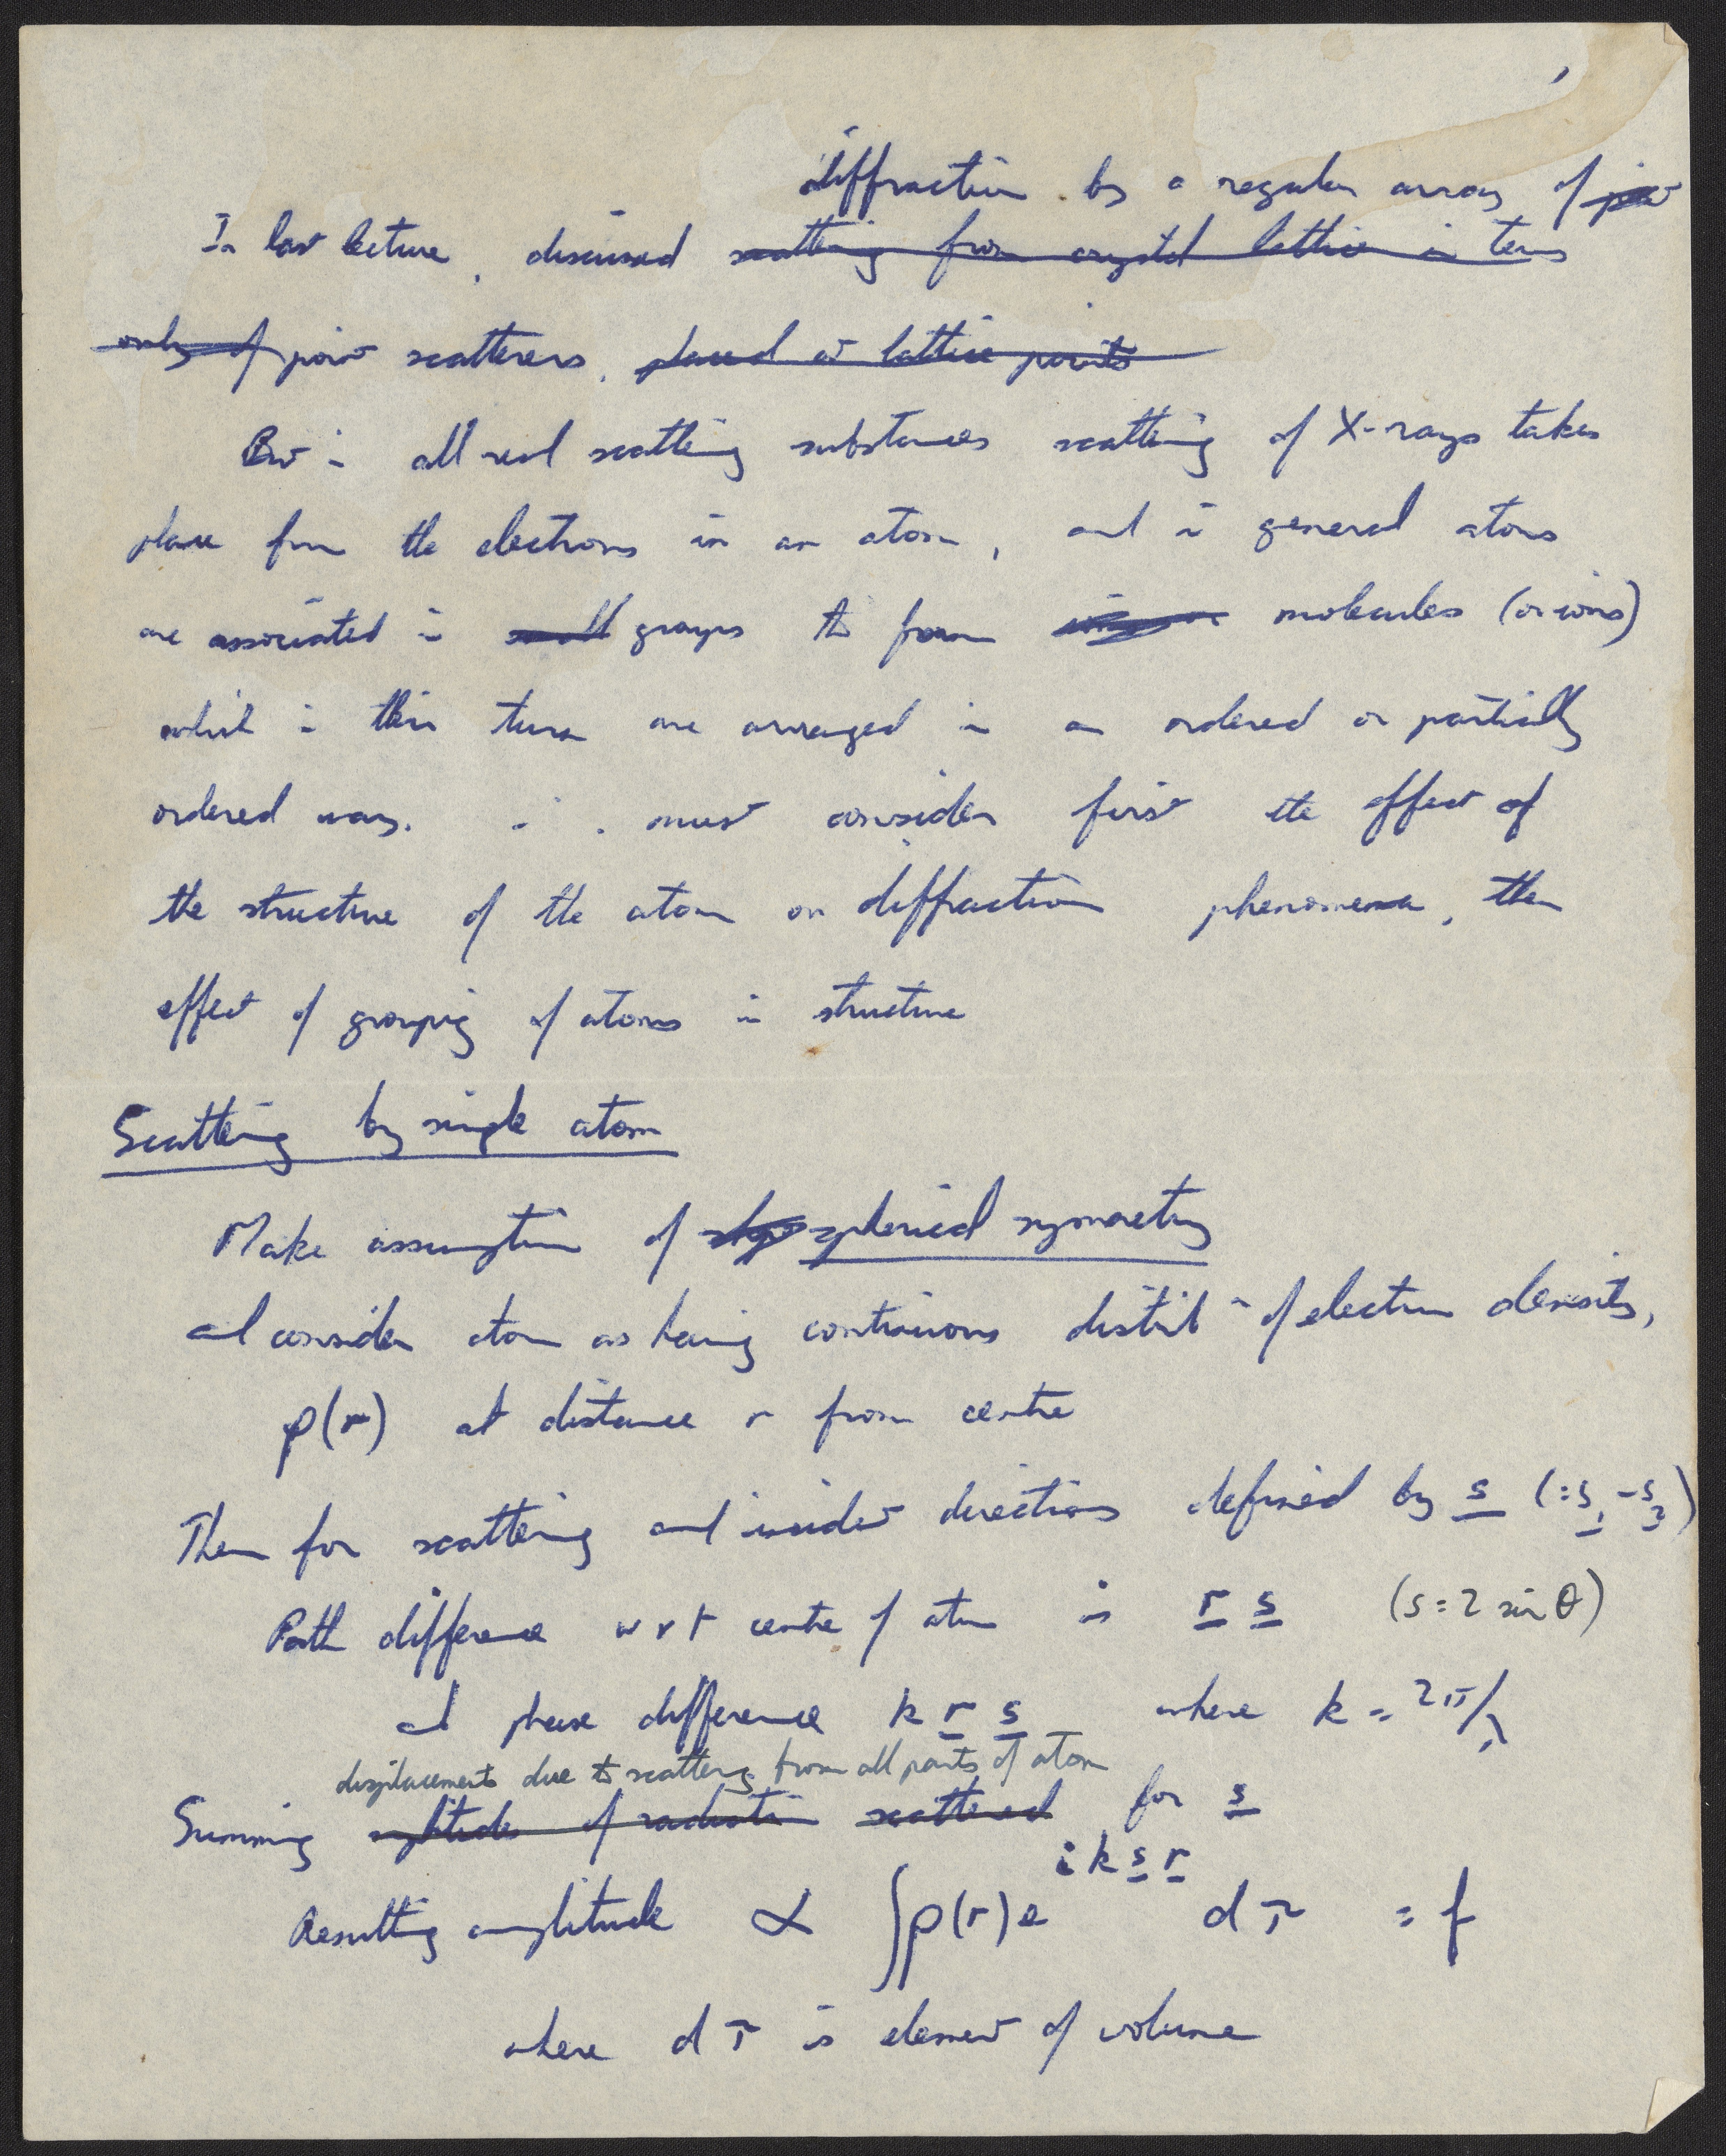 diffraction by a regular array of poin
In last lecture, discussed scattering from crystal lattice in terms
only of point scatterers, placed at lattice points
But in all real scattering substances scattering of X-rays takes
place from the electrons in an atom, and in general atoms
are associated in small groups to form molecules (or ions)
which in their turn are arranged in an ordered or partially
ordered way. ∴ must consider first the effect of
the structure of the atom on diffraction phenomena, then
effect of grouping of atoms in structure
Scattering by single atom
Make assumption of spherical symmetry
and consider atom as having continuous distribn of electron density,
ρ(r) at distance r from centre
Then for scattering and incident directions defined by s (=s1 - s2)
Path difference w r t centre of atom is r s (s = 2 sin θ)
and phase difference k r s where k = 2π/λ
displacements due to scattering from all parts of atom
Summing amplitudes of radiation scattered for s
Resulting amplitude ∝ ∫ρ(r) e^{i k s r} dτ = f
where dτ is element of volume